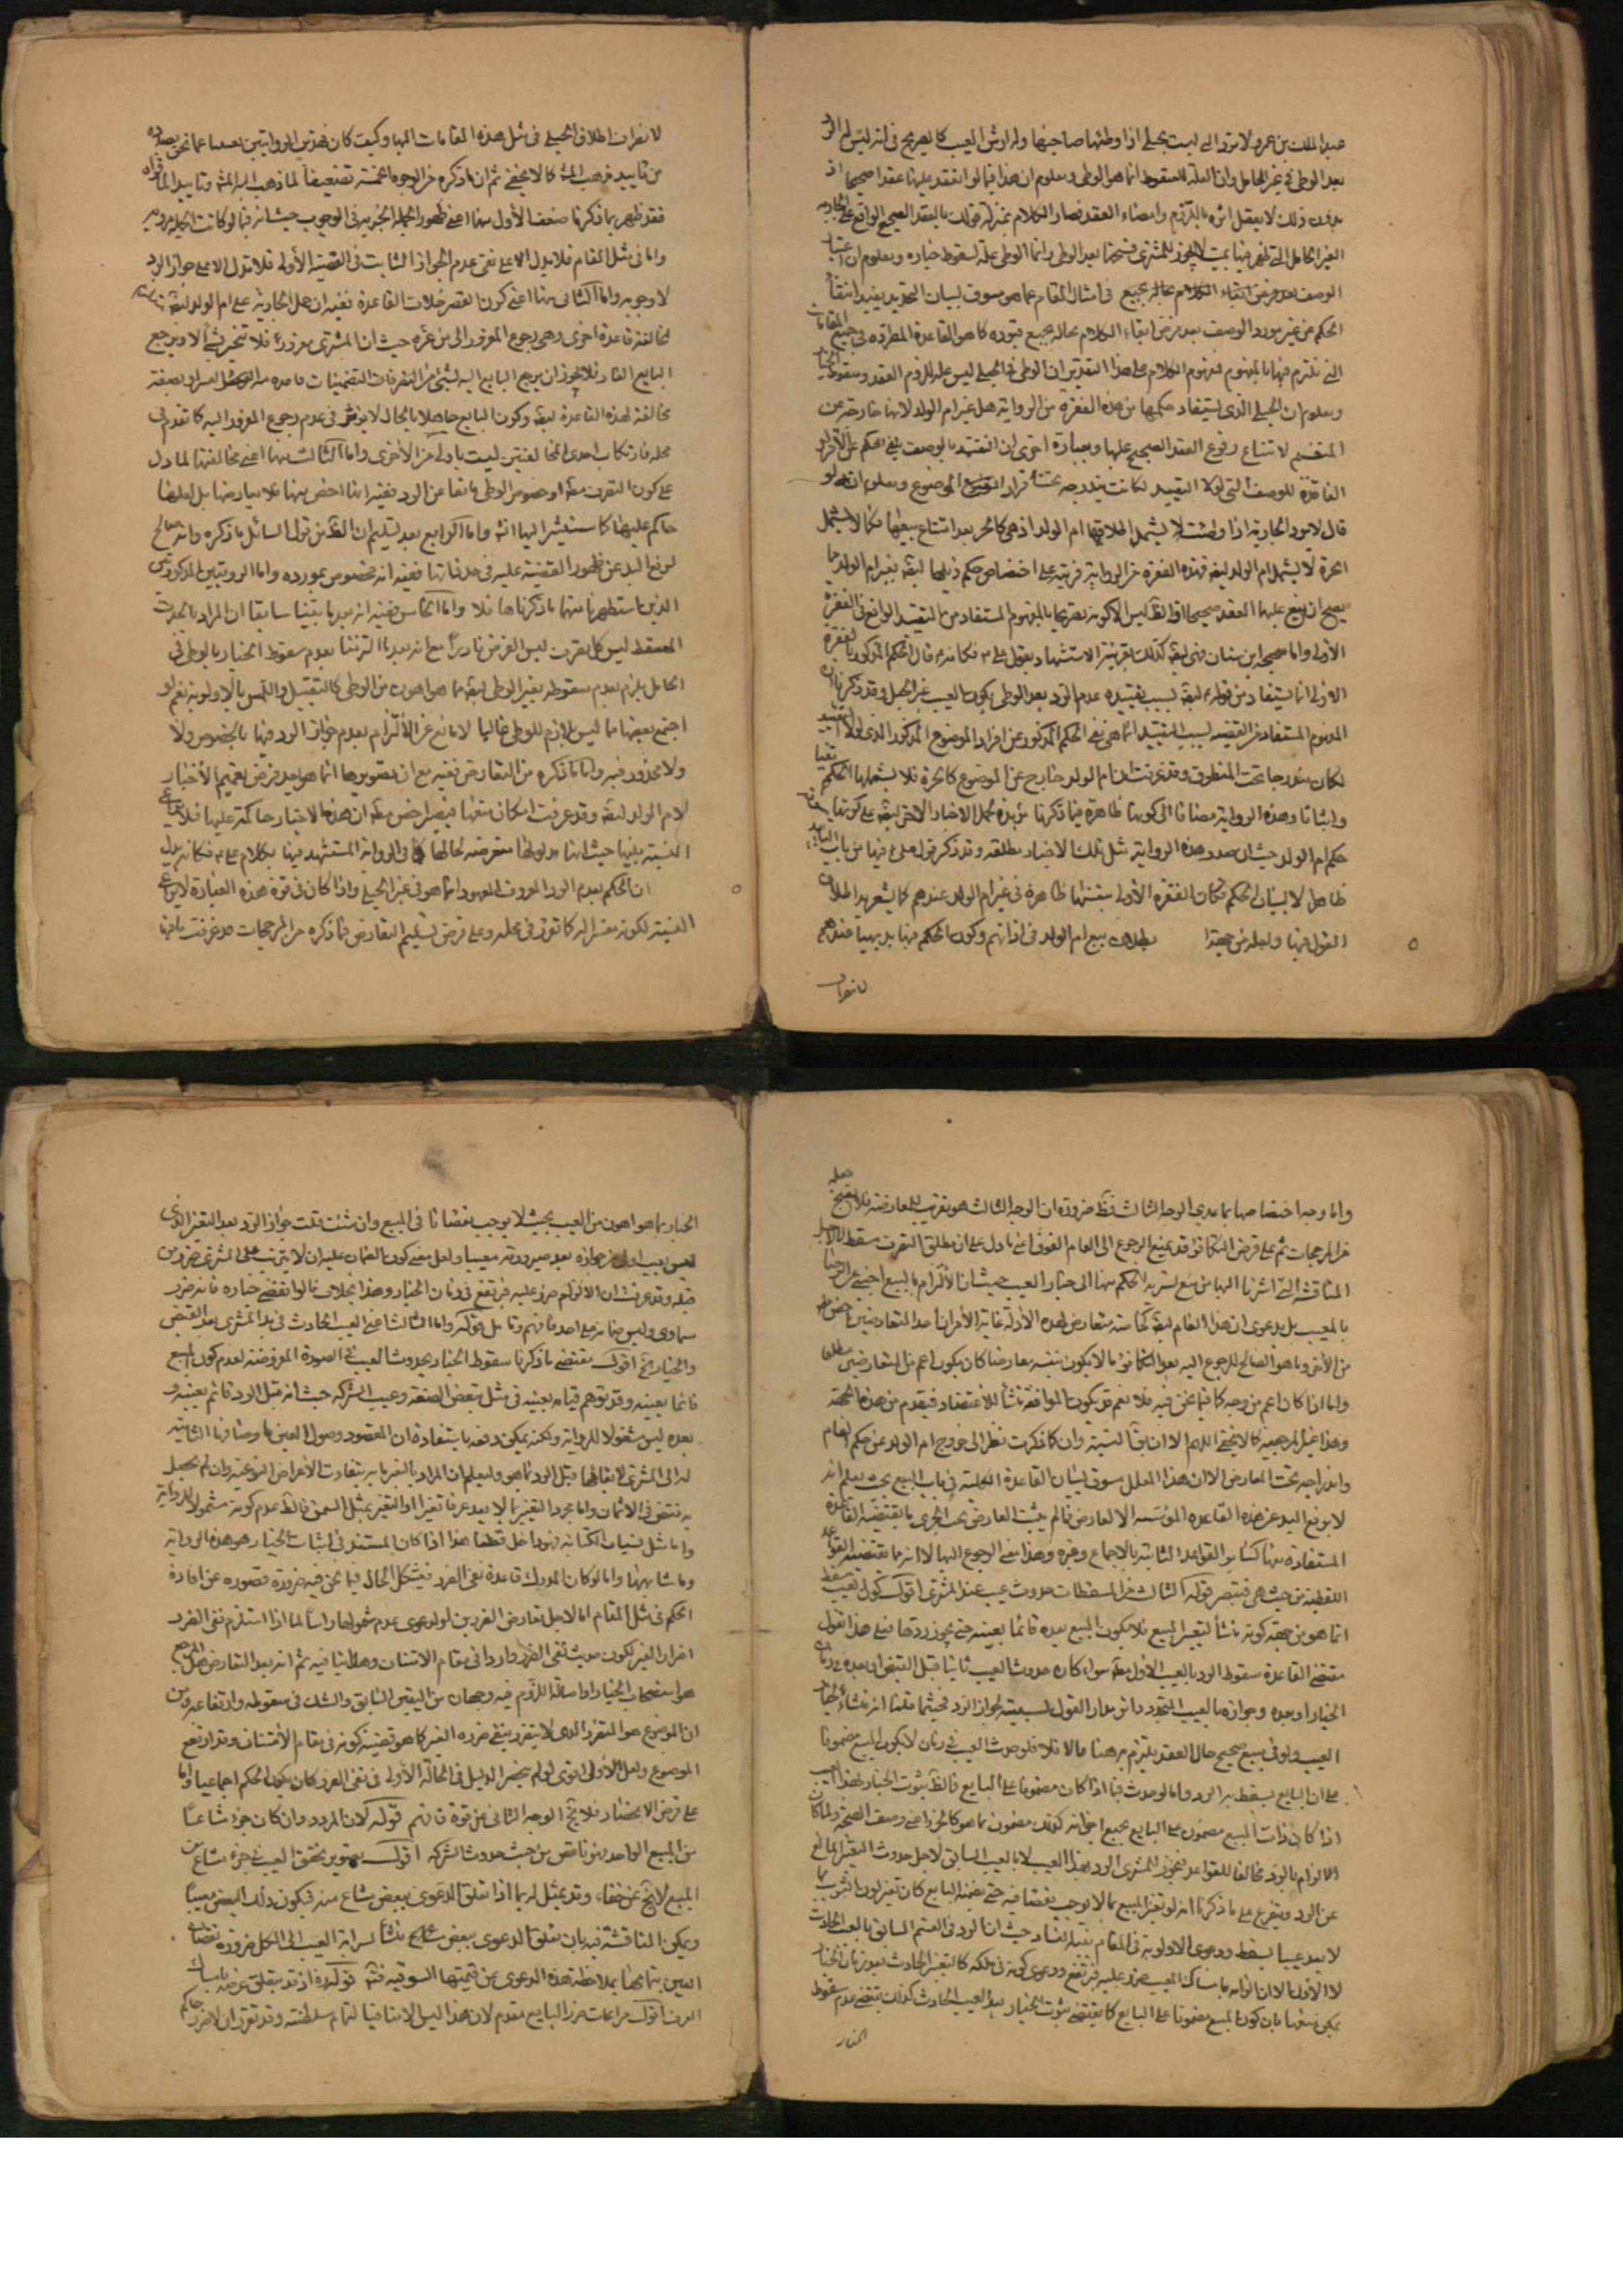 عبد الملك بن عمرو لا ترد التي ليست بحبلى اذا وطئها صاحبها وله ارش العيب كالصريح في انه ليس له الرد
بعد الوطي في غير الحامل وان العلة للسقوط انما هو الوطي ومعلوم ان هذا فيما لو انعقد عليها عقدا صحيحا اذ
بدون ذلك لا يعقل اثره باللزوم وامضاء العقد فصار الكلام بمنزلة قولك بالعقد الصحيح الواقع على الجارية
الوصف بعد فرض ابقاء الكلام بحاله بجميع في امثال المقام مما هو مسوق لبيان التحديد يفيد انتفاء
الحكم عن غير مورد الوصف بعد فرض ابقاء الكلام بحاله بجميع قيوده كما هو القاعدة المطردة في جميع المقامات
التي نلتزم فيها بالمفهوم فمفهوم الكلام على هذا التقدير ان الوطي في الحبلى ليس علة للزوم العقد وسقوط الخيار
ومعلوم ان الحبلى الذي يستفاد حكمها من هذه الفقرة من الرواية هل غير ام الولد لانها خارجة عن
المقسم لامتناع وقوع العقد الصحيح عليها وبعبارة اخرى ان التقييد بالوصف نفي الحكم عن الافراد
الفاقدة للوصف التي لولا التقييد لكانت مندرجة تحت افراد الموضوع ومعلوم انه لو
قال لا يرد الجارية اذا وطئت لا يشمل اطلاقها ام الولد اذ هي كالحر بعد امتناع بيعها فكما لا يشمل
الحرة لا يشمل ام الولد ايضا فهذه الفقرة من الرواية قرينة على اختصاص حكم ذيلها ايضا بغير ام الولد مما
يصح ان يقع عليها العقد صحيحا اذ الظ ليس الا كونه تصريحا بالمفهوم المستفاد من التقييد الواقع في الفقرة
الاولى واما صحيحة ابن سنان فهي ايضا كذلك بقرينة الاستشهاد بقول علي ع فكانه ع قال الحكم المذكور بالفقرة
الاولى انما يستفاد من قوله ع ايضا بسبب تقييده عدم الرد بعد الوطي بكون العيب غير الحبل وقد ذكرنا ان
المفهوم المستفاد من القضية بسبب التقييد انما هي نفي الحكم المذكور عن افراد الموضوع المذكور الذي لولا التقييد
لكان مندرجا تحت المنطوق وقد عرفت ان ام الولد خارج عن الموضوع كالحرة فلا يشملها الحكم نفيا
واثباتا وهذه الرواية مضافا الى كونها ظاهرة فيما ذكرنا مؤيدة لحمل الاخبار الاخر ايضا على كونها
حكم ام الولد حيث ان صدر هذه الرواية مثل تلك الاخبار مطلقة وقد ذكر قول علي ع فيها من باب التاييد
ظاهرا لا لبيان الحكم فكان الفقرة الاولى بنفسها ظاهرة في غير ام الولد عندهم كما يشعر به اطلاق
القول فيها ولعله من جهة بطلان بيع ام الولد في اذهانهم وكون الحكم فيها بديهيا عندهم
لانصراف
لانصراف اطلاق الحبلى في مثل هذه المقامات اليها وكيف كان فهذين الروايتين بعيدتا عما نحن بصدده
من تاييد مذهب المش كما لا يخفى ثم ان ما ذكره من الوجوه الخمسة تضعيفا لما ذهب اليه المش وتاييد الما قواه
فقد ظهر بما ذكرنا ضعف الاول منها اعني ظهور الجملة الخبرية في الوجوب حيث انه فيما لو كانت الجملة موجبة
واما في مثل المقام فلا يدل الا على نفي عدم الجواز الثابت في القضية الاولى فلا تدل الا على جواز الرد
لا وجوبه واما الثاني منها اعني كون القصر خلاف القاعدة ففيه ان حمل الجارية على ام الولد ايضا مستلزم
لمخالفة قاعدة اخرى وهي رجوع المغرور الى من غره حيث ان المشتري مغرور فلا تغرير شيئا الا ويرجع
مخالفة لهذه القاعدة ايضا وكون البايع جاهلا بالحال لا يؤثر في عدم رجوع المغرور اليه كما تقدم في
محله فارتكاب احدى المخالفتين ليست باولى من الاخرى واما الثالث منها اعني مخالفتها لما دل
على كون التصرف مطلقا او خصوص الوطي مانعا عن الرد ففيه انها اخص منها فلا يعارضها بل لعلها
حاكم عليها كما سنشير اليها انش واما الرابع بعد تسليم ان الظ من قول السائل ما ذكره وانه صالح
لرفع اليد عن ظهور القضية عليه في حد ذاتها ففيه انه مخصوص بمورده واما الروايتين المذكورتين
الذين استظهرنا منهما ما ذكرناها فلا واما الخامس ففيه انه بعد ما بينا سابقا ان المراد بالحدث
المسقط ليس كل تصرف ليس الفرض نادرا مع انه بعد ما التزمنا بعدم سقوط الخيار بالوطي في
الحامل يلزم بعدم سقوطه بغير الوطي ايضا مما هو اهون من الوطي كالتقبيل واللمس بالاولوية نعم لو
اجتمع بعضها مما ليس بلازم للوطي غالبا لا مانع عن الالتزام بعدم جواز الرد فيها بالخصوص ولا
ولا محذور فيه واما ما ذكره من التعارض ففيه مع ان تصويرها انما هو بعد فرض تعميم الاخبار
لام الولد ايضا وقد عرفت امكان منعها فيصير اخص مطلقا ان هذه الاخبار حاكمة عليها فلا يراعى
النسبة بينها حيث انها بمدلولها متعرضة لحالها كما في الرواية المستشهد فيها بكلام علي ع فكانه يدل
ان الحكم بعدم الرد المعروف المعهود انما هو في غير الحبلى واذا كان في قوة هذه العبارة لا يراعى
النسبة لكونه مفسرا له كما تقرر في محله وعلى فرض تسليم التعارض فما ذكره من المرجحات قد عرفت ما فيها
واما وجه اختصاصها بما عدى الوجه الثالث فظ ضرورة ان الوجه الثالث هو تقريب للمعارضة فلا يصح جعله
من المرجحات ثم على فرض التكافؤ قد يمنع الرجوع الى العام الفوق اعني ما دل على ان مطلق التصرف مسقط لاجل
المناقشة التي اشرنا اليها من منع تسرية الحكم منها الى خيار العيب حيث ان الالتزام بالبيع اجنبي عن الرضا
بالمعيب بل بدعوى ان هذا العام ايضا كخاصه متعارض لهذه الادلة غاية الامر ان احد المتعارضين اخص مطلقا
من الاخر وما هو الصالح للرجوع اليه بعد التكافؤ ما لا يكون بنفسه معارضا كان يكون اعم من المتعارضين مطلقا
واما اذا كان اعم من وجه كما فيما نحن فيه فلا نعم قد يكون الموافقة منشأ للاعتضاد فيقدم من هذه الجهة
وهذا غير المرجعية كما لا يخفى اللهم الا ان يق النسبة وان كان كما ذكرت نظرا الى خروج ام الولد عن حكم العام
واندراجه تحت المعارض الا ان هذا المعلل سوقي لبيان القاعدة الكلية في باب البيع بحيث يعلم انه
لا يرفع اليد عن هذه القاعدة المؤسسة الا لعارض فما لم يثبت المعارض يجب الجري بما تقتضيه القاعدة
المستفادة منها كسائر القواعد الثابتة بالاجماع وغيره وهذا معنى الرجوع اليها لا انه ما يقتضيه القواعد
اللفظية من حيث هي فتبصر قوله الثالث من المسقطات حدوث عيب عند المشتري اقول كون العيب مسقط
انما هو من جهة كونه منشأ لتغير المبيع فلا يكون المبيع بعده قائما بعينه حتى يجوز ردها فعلى هذا نقول
مقتضى القاعدة سقوط الرد بالعيب الاول مطلقا سواء كان حدوث العيب ثانيا قبل القبض او بعده في زمان
الخيار او بعده وجوازه بالعيب المتجدد دائر مدار القول بسببيته لجواز الرد فحيثما قلنا انه منشاء لخيار
العيب ولو في مبيع صحيح حال العقد يلتزم به هنا وما لا فلا فلو حدث العيب في زمان لا يكون المبيع مضمونا
على ان البايع يسقط به الرد واما لو حدث فيما اذا كان مضمونا على البايع فالظ ثبوت الخيار لهذا العيب
اذا كان ذات المبيع مضمون على البايع بجميع اجزائه كذلك مضمون بما هو كالجزء اعني وصف الصحة ولما كان
الالزام بالرد مخالفا للقواعد فيجوز للمشتري الرد بهذا العيب لا بالعيب السابق لاجل حدوث التغير المانع
عن الرد ويتفرع على ما ذكرنا انه لو تغير المبيع بما لا يوجب نقصا فيه حتى يضمنه البايع كان تغير لون الثوب بما
لا يعد عيبا يسقط ودعوى الاولوية في المقام بينة الفساد حيث ان الرد في القسم السابق بالعيب الحادث
لا الاول الا ان الزامه بامساك المعيب ضرر عليه فيرتفع ودعوى كونه في ملكه كالتغير الحادث بعد زمان الخيار
يمكن منعها بان كون المبيع مضمونا على البايع كما يقتضي ثبوت الخيار بعد العيب الحادث كذلك يقتضي عدم سقوط
الخيار
الخيار بما هو اهون من العيب بحيث لا يوجب نقصانا في المبيع وان شئت قلت جواز الرد بعد التغير الذي
ليس بعيب اولى من جوازه بعد صيرورته معيبا ولعل معنى كون الضمان عليه ان لا يترتب على المشتري ضرر من
قبله وقد عرفت ان الالزام ضرر عليه فيرتفع في زمان الخيار وهذا بخلاف ما لو انقضى خياره فانه ضرر
سماوي وليس ضمانه على احد فافهم وتامل قوله واما الثالث اعني العيب الحادث في يد المشتري بعد القبض
والخيار الخ اقول مقتضى ما ذكرنا سقوط الخيار بحدوث العيب في الصورة المفروضة لعدم كون المبيع
قائما بعينه وقد يتوهم قيامه بعينه في مثل تبعض الصفقة وعيب الشركة حيث انه قبل الرد قائم بعينه و
بعده ليس مشمولا للرواية ولكنه يمكن دفعه باستفادة ان المقصود وصول العين باوصافها الثابتة
له الى المشتري لا بقائها قبل الرد كما هو وليعلم ان المراد بالتغير ما به يتفاوت الاغراض النوعية وان لم يحصل
به نقص في الاثمان واما مجرد التغير بما لا يعد عرفا تغيرا او التغير بمثل السمن فالظ عدم كونه مشمولا للرواية
واما مثل نسيان الكتابة فهو داخل قطعا هذا اذا كان المستند في اثبات الخيار هو هذه الرواية
وما شابهها واما لو كان المدرك قاعدة نفي الضرر فيشكل الحال فيما نحن فيه ضرورة قصوره عن افادة
الحكم في مثل المقام اما لاجل تعارض الضررين او لدعوى عدم شمولها راسا لما اذا استلزم نفي الضرر
اضرار الغير لكون حديث نفي الضرر واردا في مقام الامتنان وهذا ينافيه ثم انه بعد التعارض هل المرجع
هو استصحاب الخيار او اصالة اللزوم فيه وجهان من اليقين السابق والشك في سقوطه وارتفاعه ومن
ان الموضوع هو المتضرر الذي لا يتضرر بنفي ضرره الغير كما هو قضية كونه في مقام الامتنان وقد ارتفع
الموضوع ولعل الاول اقوى لو لم ينحصر الدليل في الحالة الاولى في نفي الضرر كان يكون الحكم اجماعيا واما
على فرض الانحصار فلا يخ الوجه الثاني عن قوة فافهم قوله لان المردود وان كان جزء مشاعا
من المبيع الواحد فهو ناقص من حيث حدوث الشركة اقول تصوير تحقق العيب في جزء مشاع من
المبيع لا يخ عن خفاء وقد يمثل له بما اذا تعلق الدعوى ببعض مشاع منه فيكون ذلك البعض معيبا
ويمكن المناقشة فيه بان تعلق الدعوى ببعض مشاع منشأ لسراية العيب الى الكل ضرورة نقصان
العين بتمامها بملاحظة هذه الدعوى عن قيمتها السوقية فتامل قوله ره اذ قد يتعلق غرضه بامساك